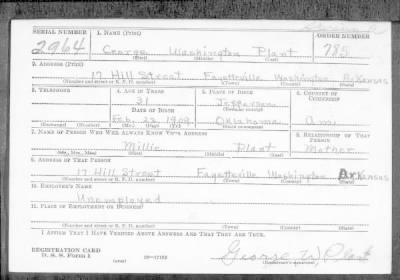 SERIAL NUMBER 1. NAME (Print) ORDER NUMBER
2964 George Washington Plant 785
(First) (Middle) (Last)
2. ADDRESS (Print)
17 Hill Street Fayetteville Washington Arkansas
(Number and street or R. F. D. number) (Town) (County) (State)
3. TELEPHONE 4. AGE IN YEARS 5. PLACE OF BIRTH 6. COUNTRY OF CITIZENSHIP
31 Jefferson
DATE OF BIRTH (Town or county)
Feb. 23 1909 Oklahoma Am
(Mo.) (Day) (Yr.) (State or country)
7. NAME OF PERSON WHO WILL ALWAYS KNOW YOUR ADDRESS 8. RELATIONSHIP OF THAT PERSON
Millie Plant Mother
(Mr., Mrs., Miss) (First) (Middle) (Last)
9. ADDRESS OF THAT PERSON
17 Hill Street Fayetteville Washington Arkansas
(Number and street or R. F. D. number) (Town) (County) (State)
10. EMPLOYER'S NAME
Unemployed
11. PLACE OF EMPLOYMENT OR BUSINESS
(Number and street or R. F. D. number) (Town) (County) (State)
I AFFIRM THAT I HAVE VERIFIED ABOVE ANSWERS AND THAT THEY ARE TRUE.
REGISTRATION CARD George W Plant
D. S. S. Form 1 (over) (Registrant's signature)